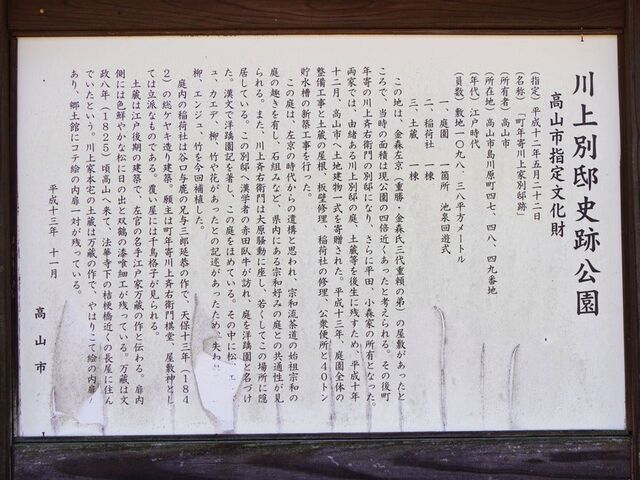 川上別邸史跡公園
高山市指定文化財
(指定) 平成十二年五月二十二日
(名称) 「町年寄川上家別邸跡」
(所有者) 高山市
(所在地) 高山市島川原町四七、四八、四九番地
(年代) 江戸時代
(員数) 敷地一〇九八、三八平方メートル
一、庭園 一箇所 池泉回遊式
二、稲荷社 一棟
三、土蔵 一棟
この地は、金森左京(重勝・金森氏三代重頼の弟)の屋敷があったと
ころで、当時の面積は現公園の四倍近くあったと考えられる。その後町
年寄の川上斉右衛門の別邸になり、さらに平田、小森家の所有となった。
両家では、由緒ある川上別邸の庭、土蔵等を後生に残すため、平成十年
十二月、高山市へ土地建物一式を寄贈された。平成十三年、庭園全体の
整備工事と土蔵の屋根・板壁修理、稲荷社の修理、公衆便所と40トン
貯水槽の新築工事を行った。
この庭は、左京の時代からの遺構と思われ、宗和流茶道の始祖宗和の
庭の趣きを有し、石組みなど、県内にある宗和好みの庭との共通性が見
られる。また、川上斉右衛門は大原騒動に座し、若くしてこの場所に隠
居している。この別邸へ漢学者の赤田臥牛が訪れ、庭を洋蹻園と名づけ
た。漢文で洋蹻園記を著し、この庭をほめている。その中に松、エ
ュ、カエデ、柳、竹や花があったとの記述があったため、失わ
柳、エンジュ、竹を今回補植した。
庭内の稲荷社は谷口与鹿の兄与三郎延恭の作で、天保十三年(184
2)の総ケヤキ造り建築。願主は町年寄川上斉右衛門棋堂、屋敷神とし
ては立派なものである。覆い屋には千鳥格子が見られる。
土蔵は江戸後期の建築で、左官の名手江戸家万蔵の作と伝わる。扉内
側には色鮮やかな松に日の出と双鶴の漆喰細工が残っている。万蔵は文
政八年(1825)頃高山へ来て、法華寺下の桔梗橋近くの長屋に住ん
でいたという。川上家本宅の土蔵は万蔵の作で、やはりこて絵の内扉
あり、郷土館にコテ絵の内扉一対が残っている。
平成十三年 十一月
高山市